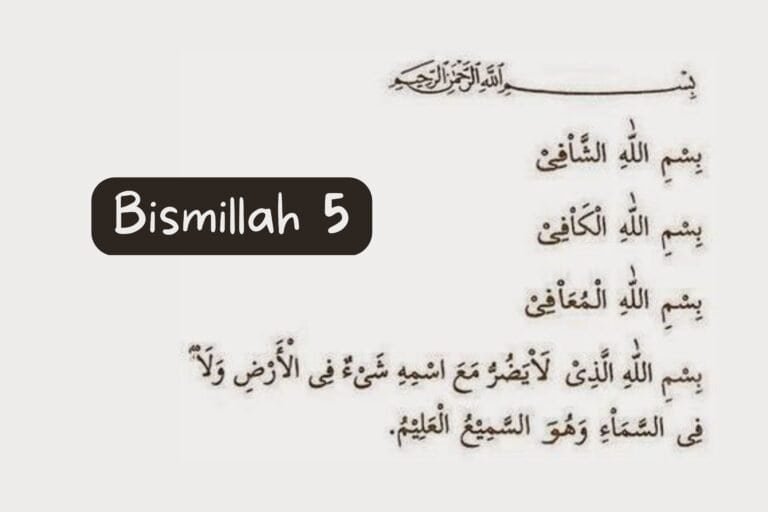 بِسْمِ اللّٰهِ الرَّحْمٰنِ الرَّحِيْمِ
بِسْمِ اللّٰهِ الشَّاْفِىْ
Bismillah 5
بِسْمِ اللّٰهِ الْكَاْفِىْ
بِسْمِ اللّٰهِ الْمُعَاْفِىْ
بِسْمِ اللّٰهِ الَّذِىْ لَاْيَضُرُّ مَعَ اسْمِهِ شَىْءٌ فِى الْأَرْضِ وَلَاْ
فِى السَّمَاْءِ وَهُوَ السَّمِيْعُ الْعَلِيْمُ.